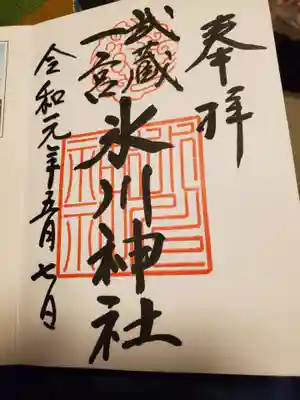 奉拝
武蔵
一宮
氷川神社
令和元年五月七日